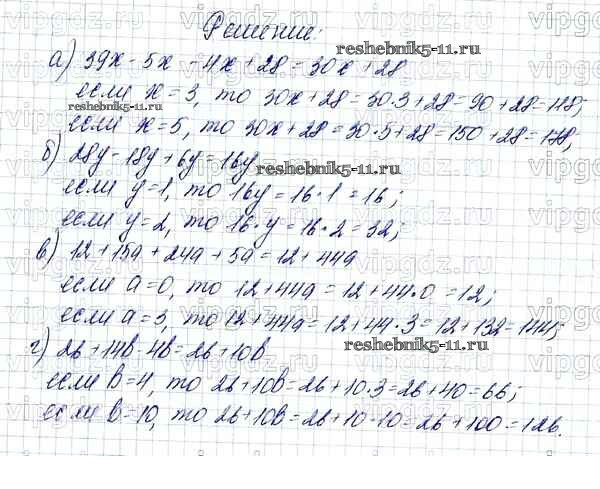 Решение:
reshebnik5-11.ru
а) 39x - 5x - 4x + 28 = 30x + 28
если x = 3, то 30x + 28 = 30·3 + 28 = 90 + 28 = 118;
если x = 5, то 30x + 28 = 30·5 + 28 = 150 + 28 = 178;
б) 28y - 18y + 6y = 16y
reshebnik5-11.ru
если y = 1, то 16y = 16·1 = 16;
если y = 2, то 16·y = 16·2 = 32;
в) 12 + 15a + 24a + 5a = 12 + 44a
если a = 0, то 12 + 44a = 12 + 44·0 = 12;
если a = 3, то 12 + 44a = 12 + 44·3 = 12 + 132 = 144;
г) 26 + 14в - 4в = 26 + 10в
reshebnik5-11.ru
если в = 4, то 26 + 10в = 26 + 10·3 = 26 + 40 = 66;
если в = 10, то 26 + 10в = 26 + 10·10 = 26 + 100 = 126.
vipgdz.ru